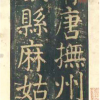 唐撫州
縣麻姑